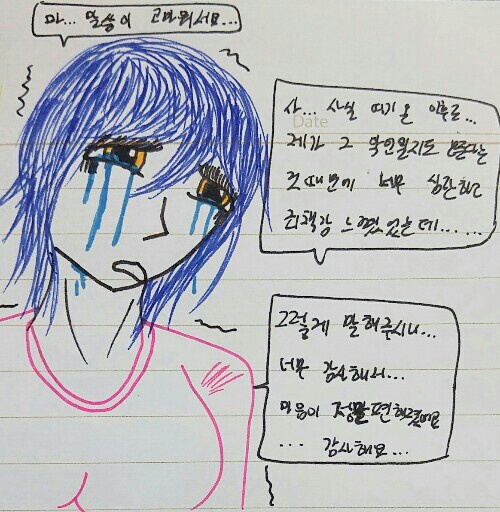 마... 말씀이 고마워서요...
사... 사실 여기 온 이후로...
Date
제가 그 악인일지도 모른다는
것 때문에 너무 심란하고
죄책감 느꼈었는데... ...
그렇게 말해주시니...
너무 감사해서...
마음이 정말 편해졌어요
... 감사해요...